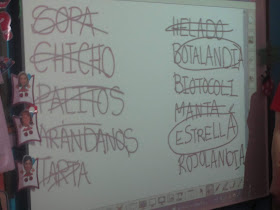 SOPA
CHICHO
PALITOS
ARÁNDANOS
TARTA
HELADO
BOTALANDIA
BIOTOCOLI
MANTA
ESTRELLA
RODOLANDIA